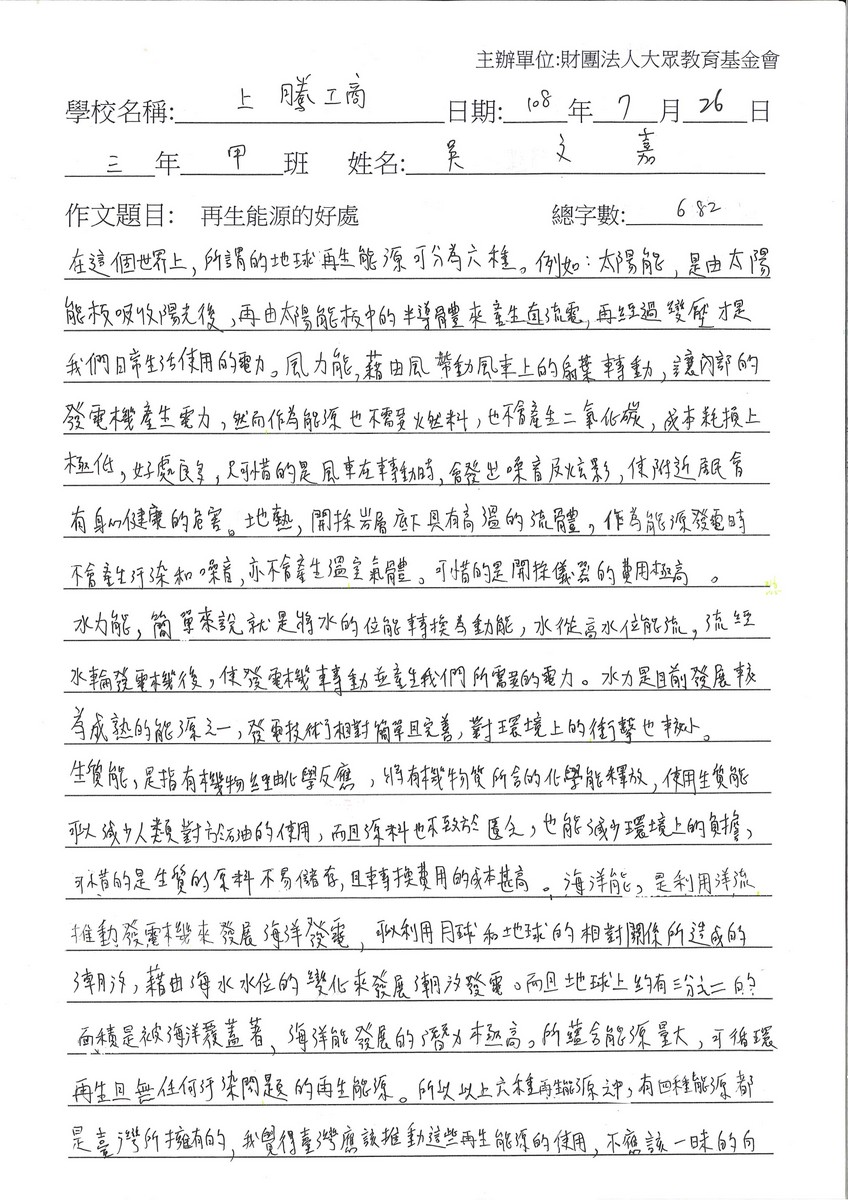 主辦單位:財團法人大眾教育基金會
學校名稱: 上騰工商 日期: 108 年 7 月 26 日
三 年 甲 班 姓名: 吳文嘉
作文題目: 再生能源的好處 總字數: 682
在這個世界上，所謂的地球再生能源可分為六種。例如：太陽能，是由太陽
能板吸收陽光後，再由太陽能板中的半導體來產生直流電，再經過變壓才是
我們日常生活使用的電力。風力能，藉由風帶動風車上的扇葉轉動，讓內部的
發電機產生電力，然而作為能源也不需要火燃料，也不會產生二氧化碳，成本耗損上
極低，好處良多，只可惜的是風車在轉動時，會發出噪音及炫影，使附近居民會
有身心健康的危害。地熱，開採岩層底下具有高溫的流體，作為能源發電時
不會產生汙染和噪音，亦不會產生溫室氣體。可惜的是開採儀器的費用極高。
水力能，簡單來說就是將水的位能轉換為動能，水從高水位能流，流經
水輪發電機後，使發電機轉動並產生我們所需要的電力。水力是目前發展較
為成熟的能源之一，發電技術相對簡單且完善，對環境上的衝擊也較小。
生質能，是指有機物經由化學反應，將有機物質所含的化學能釋放，使用生質能
可以減少人類對於石油的使用，而且原料也不致於匱乏，也能減少環境上的負擔，
可惜的是生質的原料不易儲存，且轉換費用的成本甚高。海洋能，是利用洋流
推動發電機來發展海洋發電，可以利用月球和地球的相對關係所造成的
潮汐，藉由海水水位的變化來發展潮汐發電。而且地球上約有三分之二的
面積是被海洋覆蓋著，海洋能發展的潛力極高。所蘊含能源量大，可循環
再生且無任何汙染問題的再生能源。所以以上六種再生能源之中，有四種能源都
是臺灣所擁有的，我覺得臺灣應該推動這些再生能源的使用，不應該一昧的向